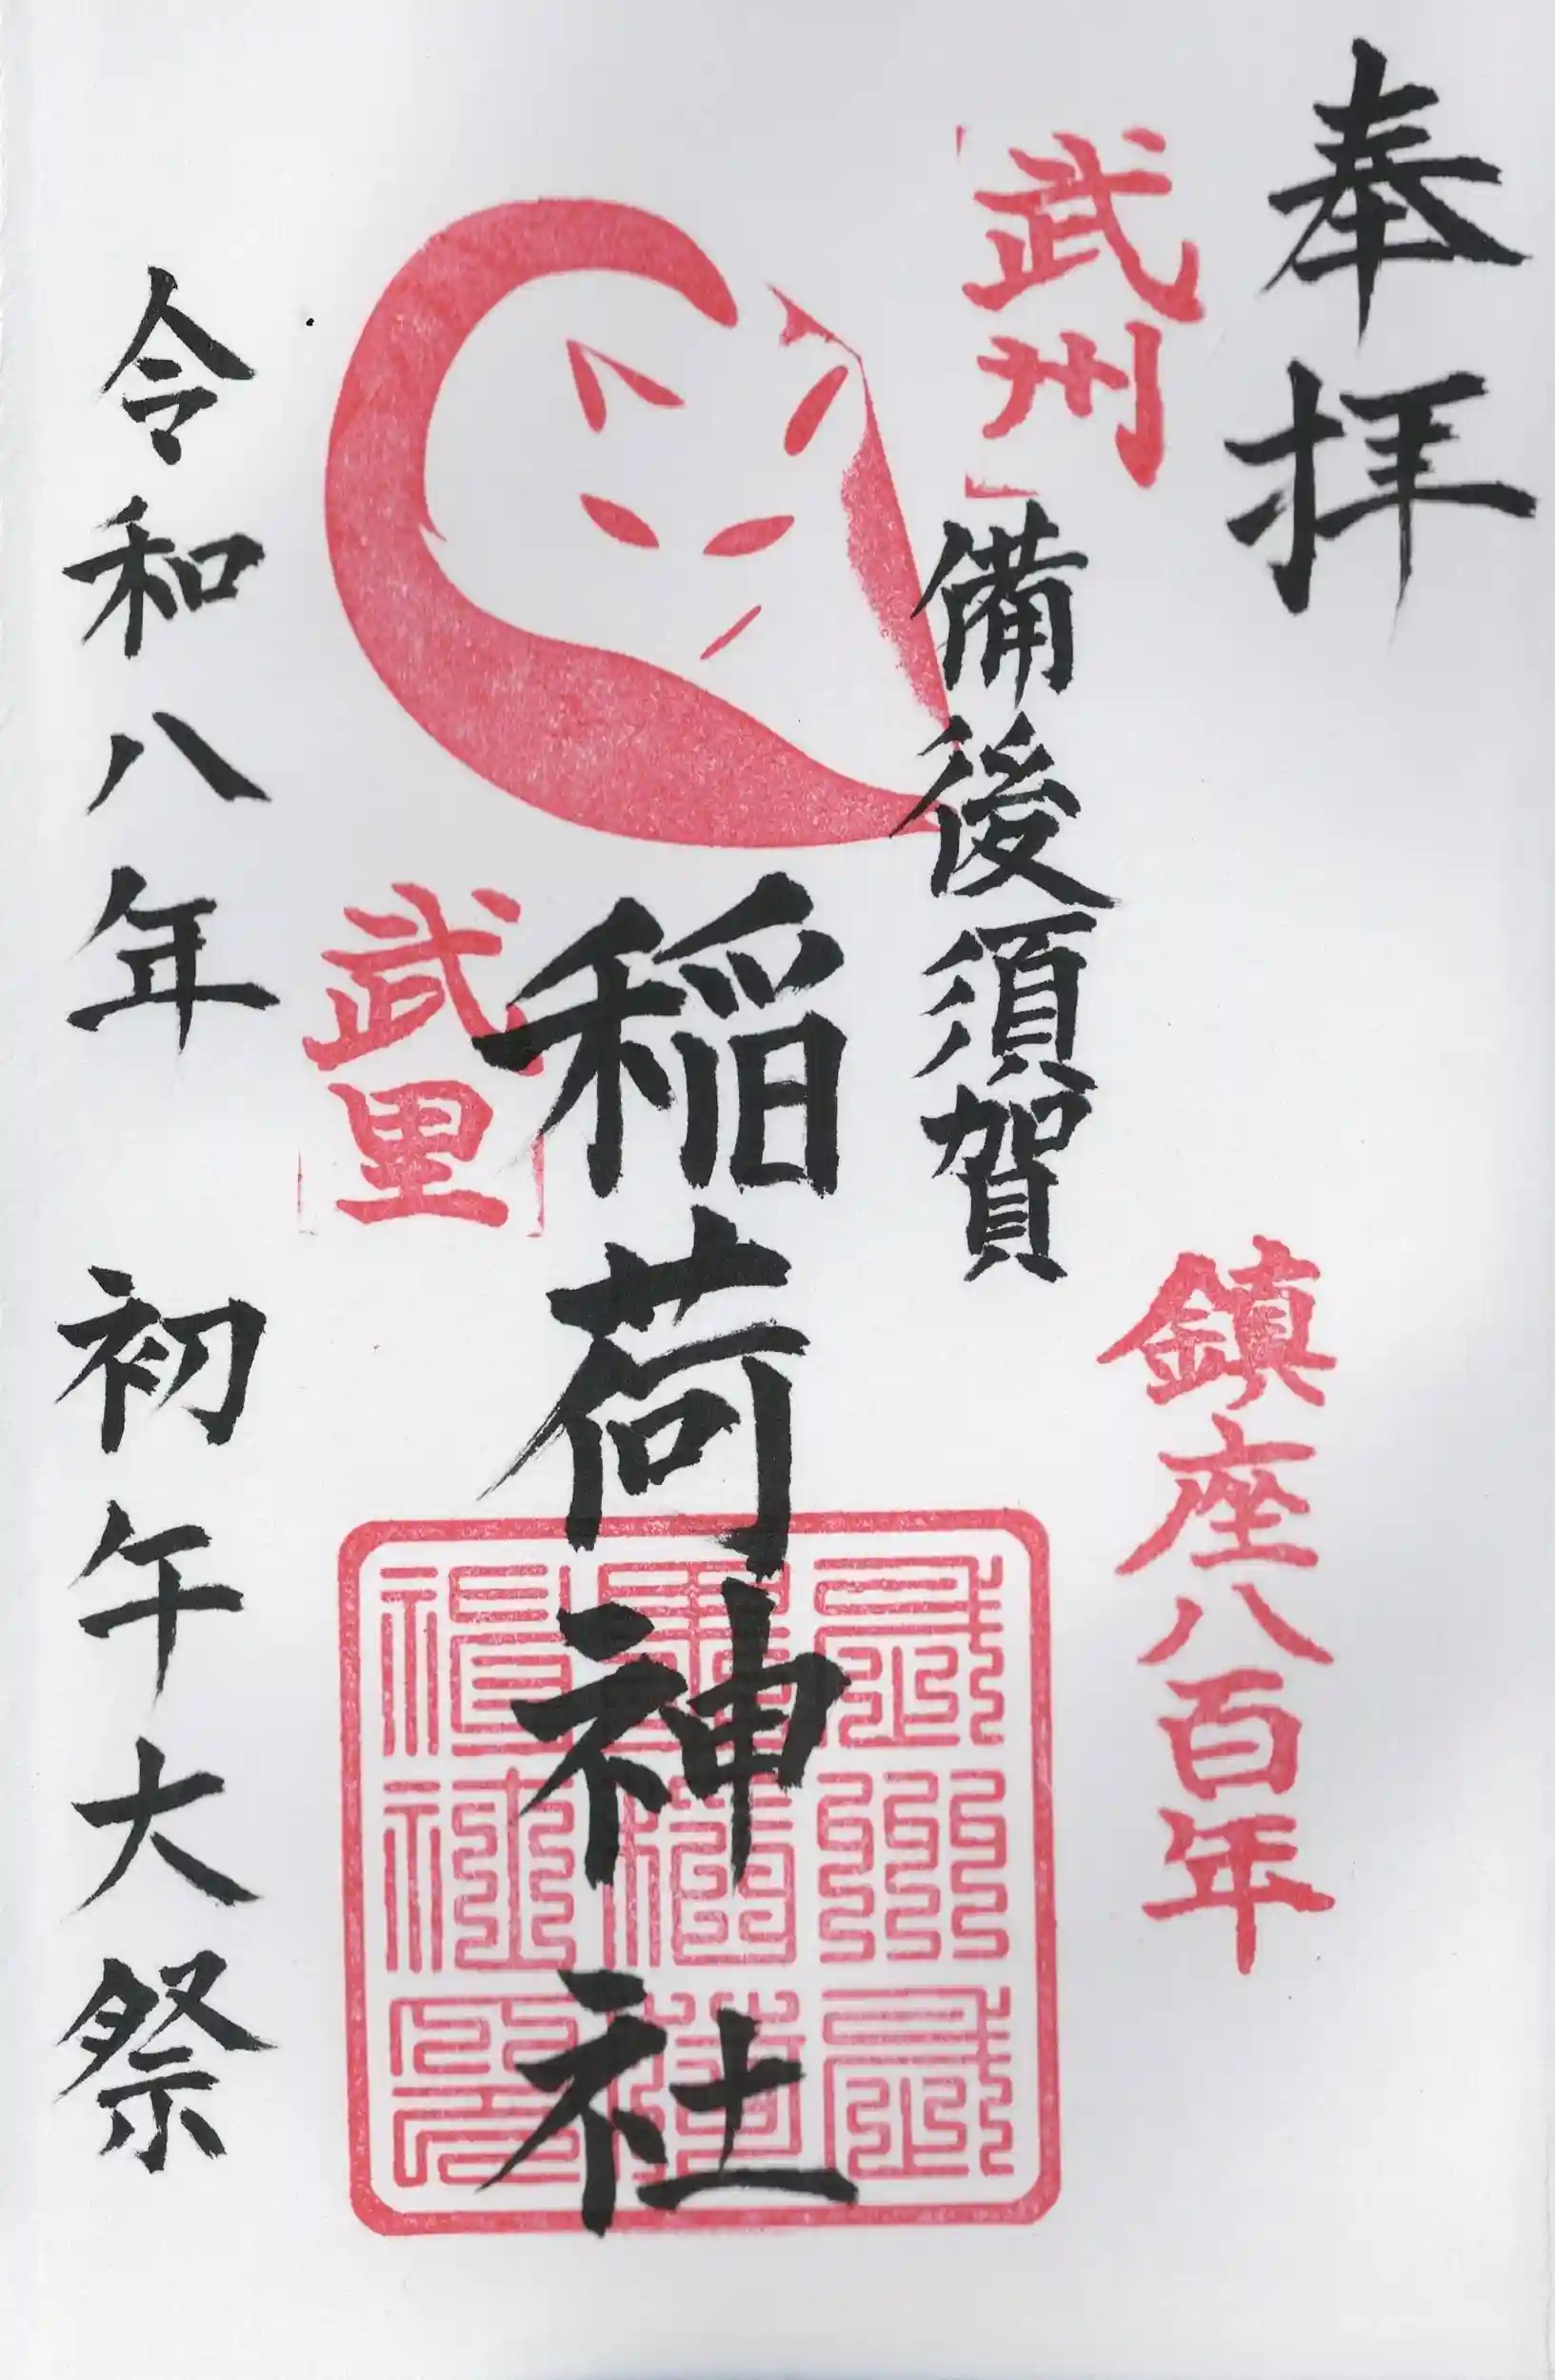 奉拝
武州
備後須賀
鎮座八百年
稲荷神社
武里
令和八年 初午大祭